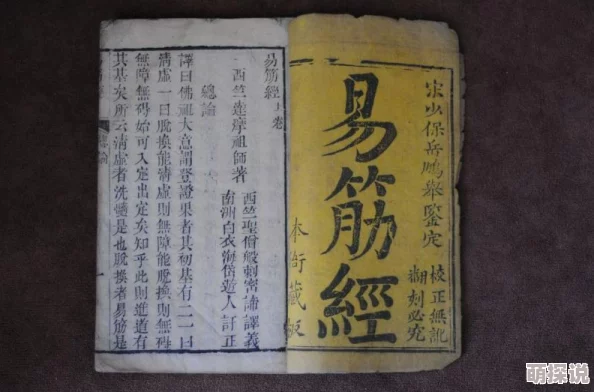 宋少保岳鵬舉鑒定
校正無訛
翻刻必究
易筋經
本衙藏板
易筋經上卷
西竺達摩祖師著
西竺聖僧般剌密諦譯義
南洲白衣海岱遊人訂正
總論
譯曰佛祖大意謂登證果者其初基有二一曰
清虛一曰脫換能清虛則無障能脫換則無碍
無障無碍始可入定出定矣知乎此則進道有
其基矣所云清虛者洗髓是也脫換者易筋是
總論
一
萌探说